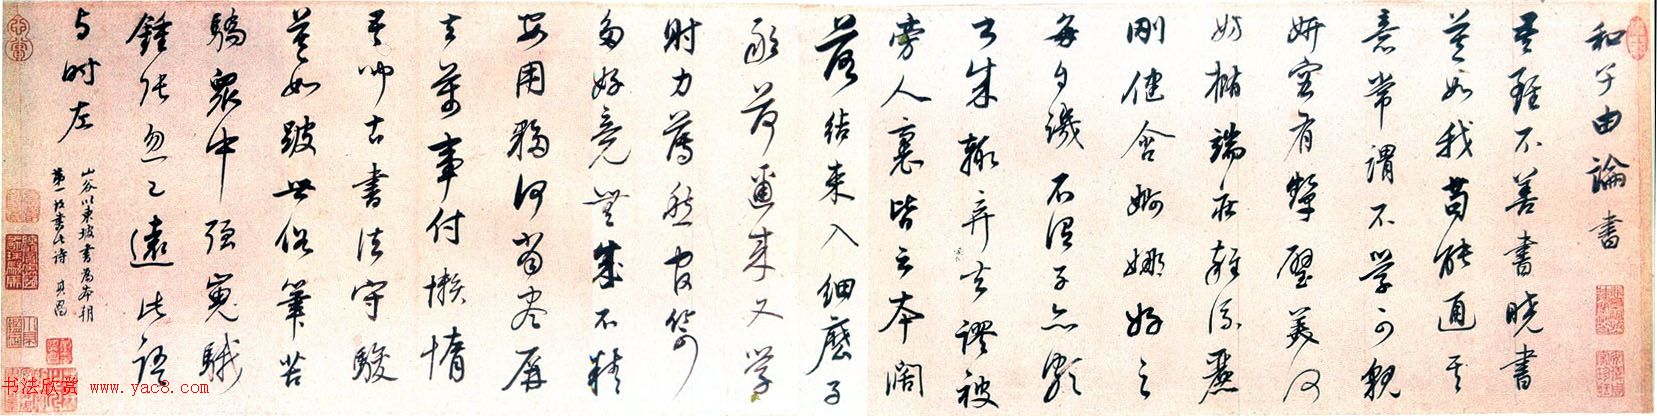 和子由論書
吾雖不善書曉書
莫如我苟能通其
意常謂不學可貌
妍容有顰璧美何
妨橢端莊雜流麗
剛健含婀娜好之
每自譏不謂子亦頗
書成輒棄去謬被
旁人裹皆云本闊
落結束入細麼子
敢荷邇來又學
射力薄愁官笴
多好竟無成不精
安用夥何當盡屏
去萬事付懶惰
吾聞古書法守駿
莫如跛世俗筆苦
驕衆中強嵬騀
鍾張忽已遠此語
與時左
山谷以東坡書為本朝
第一故書此詩 其昌
书法欣赏 www.yac8.com